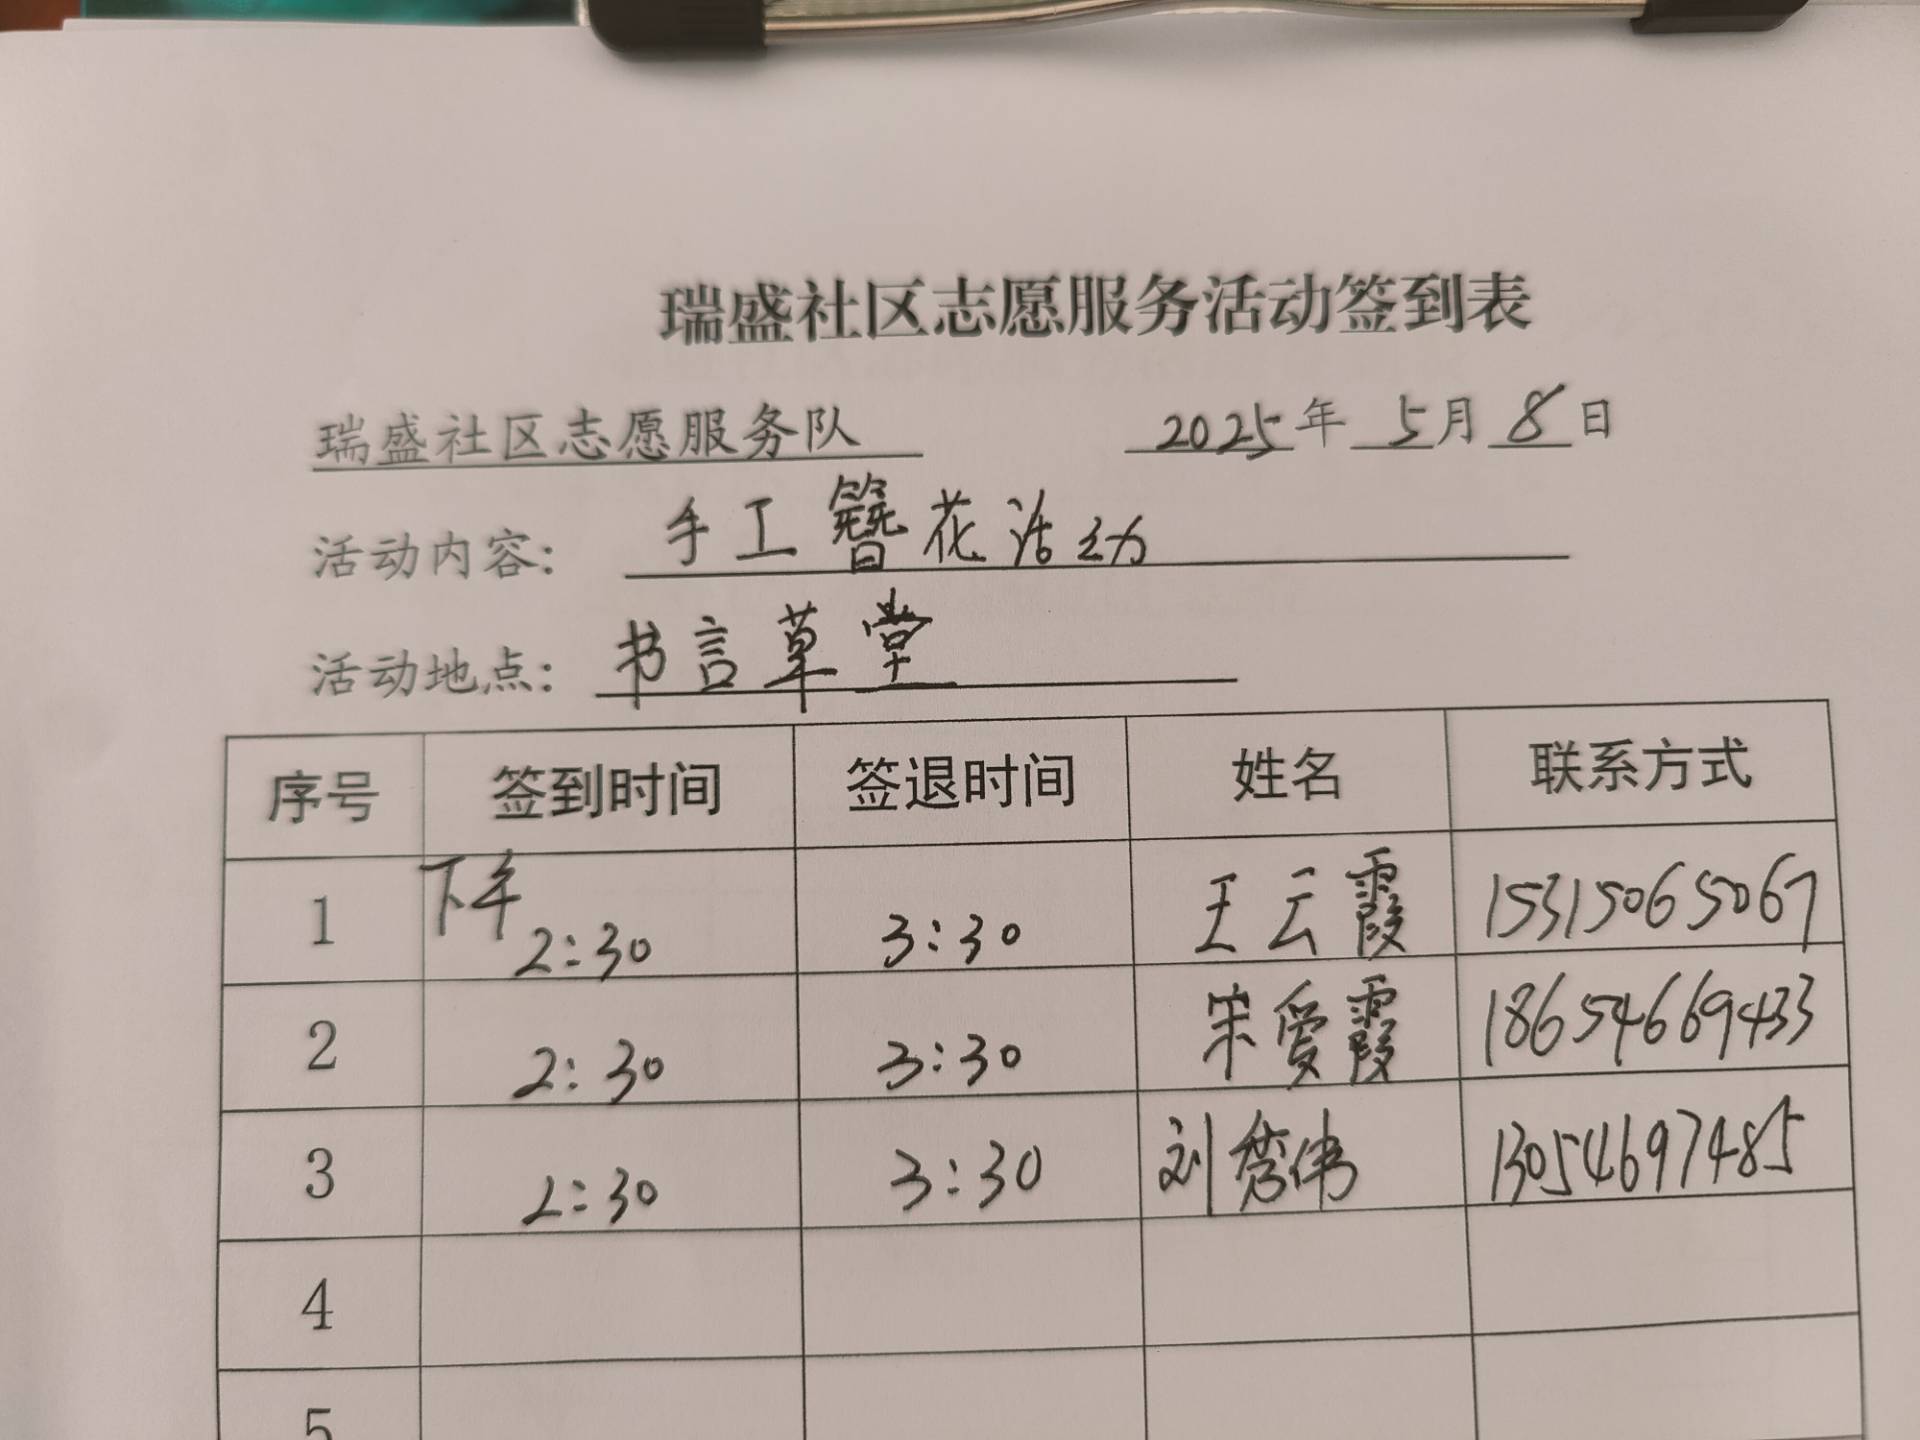 瑞盛社区志愿服务活动签到表
瑞盛社区志愿服务队 2025年 5月 8日
活动内容: 手工簪花活动
活动地点: 书言草堂
序号 签到时间 签退时间 姓名 联系方式
1 下午2:30 3:30 王云霞 15315065067
2 2:30 3:30 宋爱霞 18654669433
3 2:30 3:30 刘秀伟 13054697485
4
5